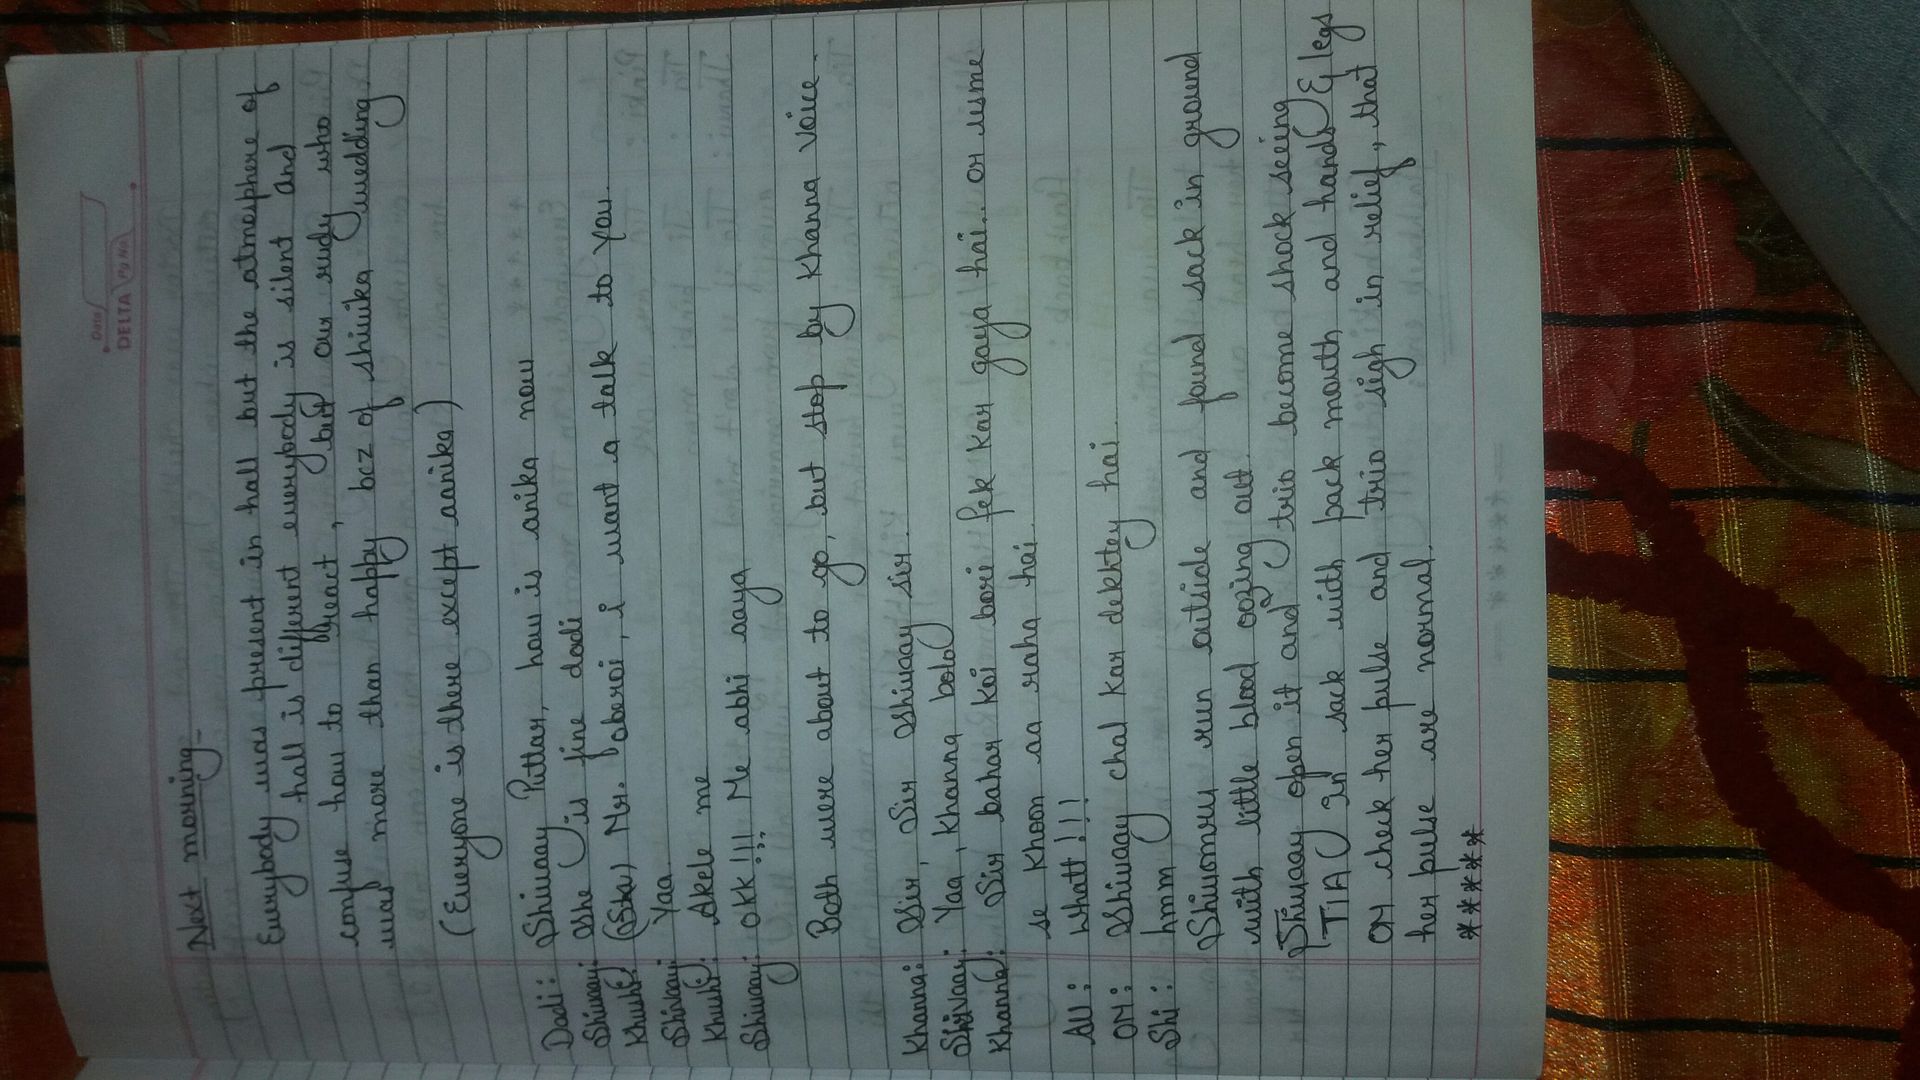 Date
DELTA Pg No
Next morning_
Everybody was present in hall but the atmosphere of
hall is different everybody is silent and
confuse how to react, but our rudy who
was more than happy bcz of shivika wedding
(Everyone is there except aanika)
Dadi: Shivaay Puttar, how is anika now
Shivaay: She is fine dadi
Khushi: (Ska) Mr. oberoi, i want a talk to you.
Shivaay: Yaa
Khushi: Akele me
Shivaay: okk!!! Me abhi aaya
Both were about to go, but stop by Khanna voice.
Khanna: Sir, Sir Shivaay sir.
Shivaay: Yaa, Khanna bolo
Khanna: Sir bahar koi bori fek kar gaya hai.. or usme
se khoon aa raha hai
All: whatt!!!
OM: Shivaay chal kar dekhtey hai
Shi: hmm
Shivomru run outside and found sack in ground
with little blood oozing out.
Shivaay open it and trio become shock seeing
[TIA] in sack with pack mouth and hands & legs
OM check her pulse and trio sigh in relief, that
her pulse are normal.
*****